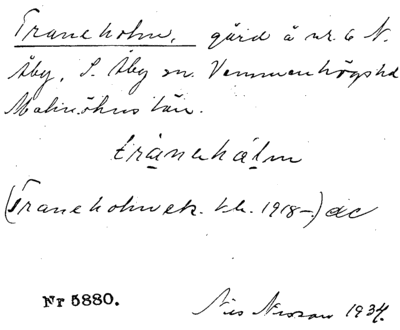 Traneholm, gård å nr. 6 N.
Åby, S. Åby sn. Vemmenhögs hd
Malmöhus län.
tranəhalm
(Traneholm ek. kb. 1918–)
Nr 5880.
Nils 1934.